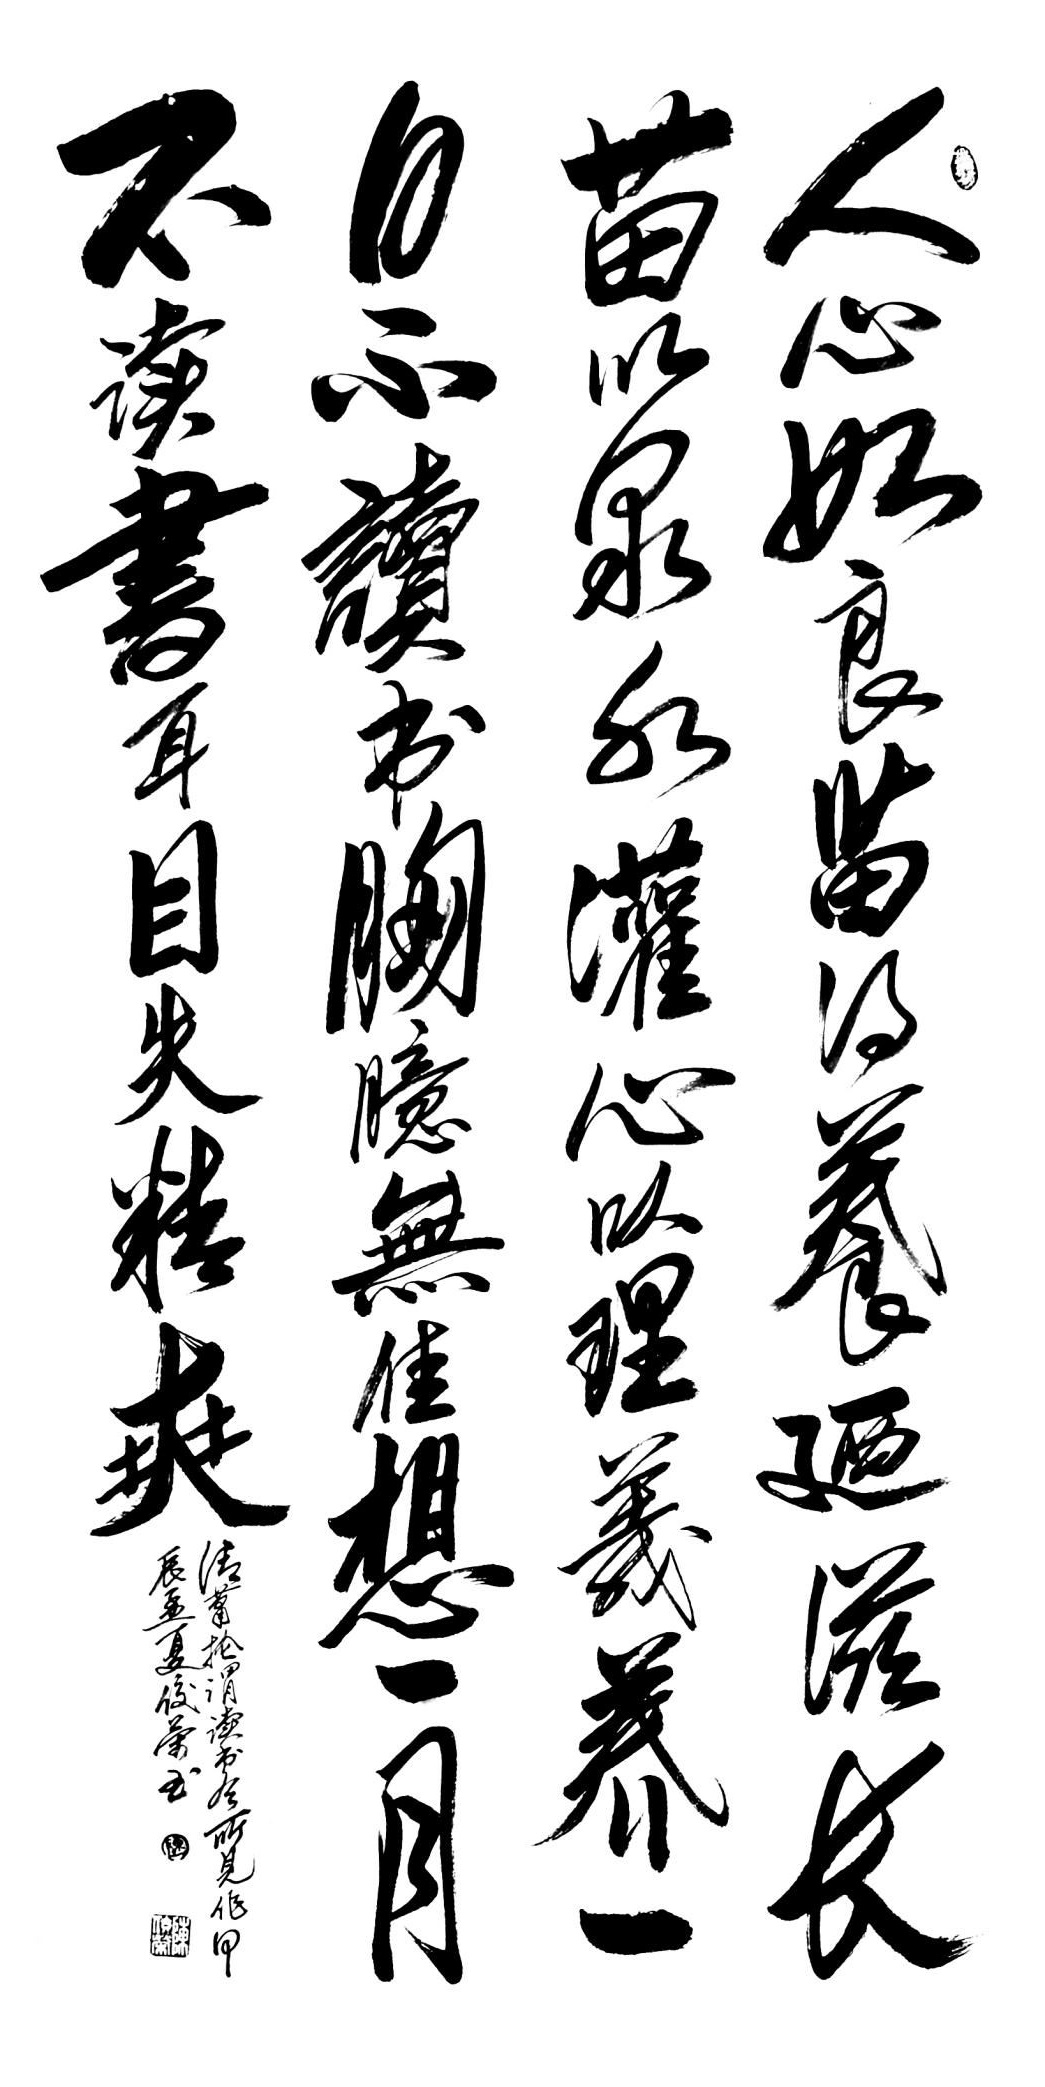 人心如良苗得養廼滋长
苗以泉水灌心以理義养一
日不讀书胸臆無佳想一月
不读書耳目失精爽
清萧抡谓读书有所見作甲
辰孟夏俊榮书